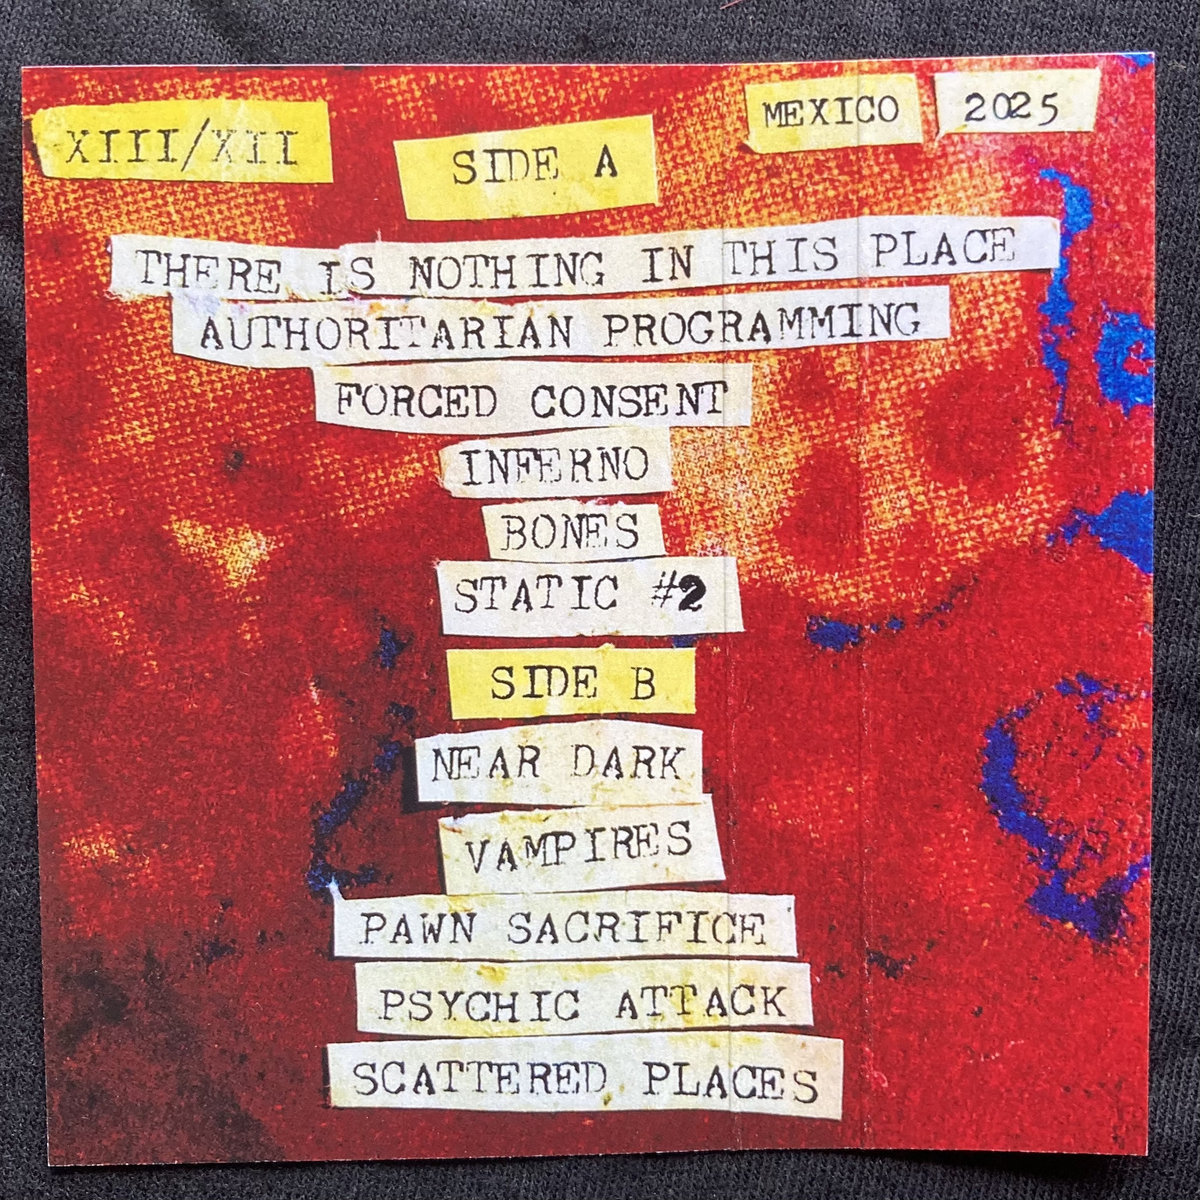 XIII/XII
SIDE A
MEXICO
2025
THERE IS NOTHING IN THIS PLACE
AUTHORITARIAN PROGRAMMING
FORCED CONSENT
INFERNO
BONES
STATIC #2
SIDE B
NEAR DARK
VAMPIRES
PAWN SACRIFICE
PSYCHIC ATTACK
SCATTERED PLACES